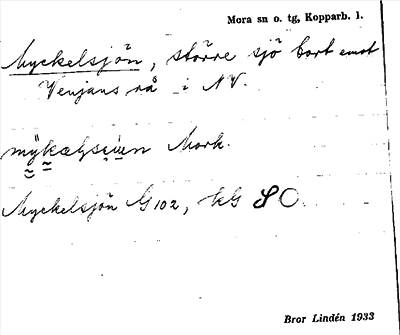 Mora sn o. tg, Kopparb. l.
Myckelsjön, större sjö bort emot
Venjans rå i NV.
Mork.
Myckelsjön G102, kG SO
Bror Lindén 1933